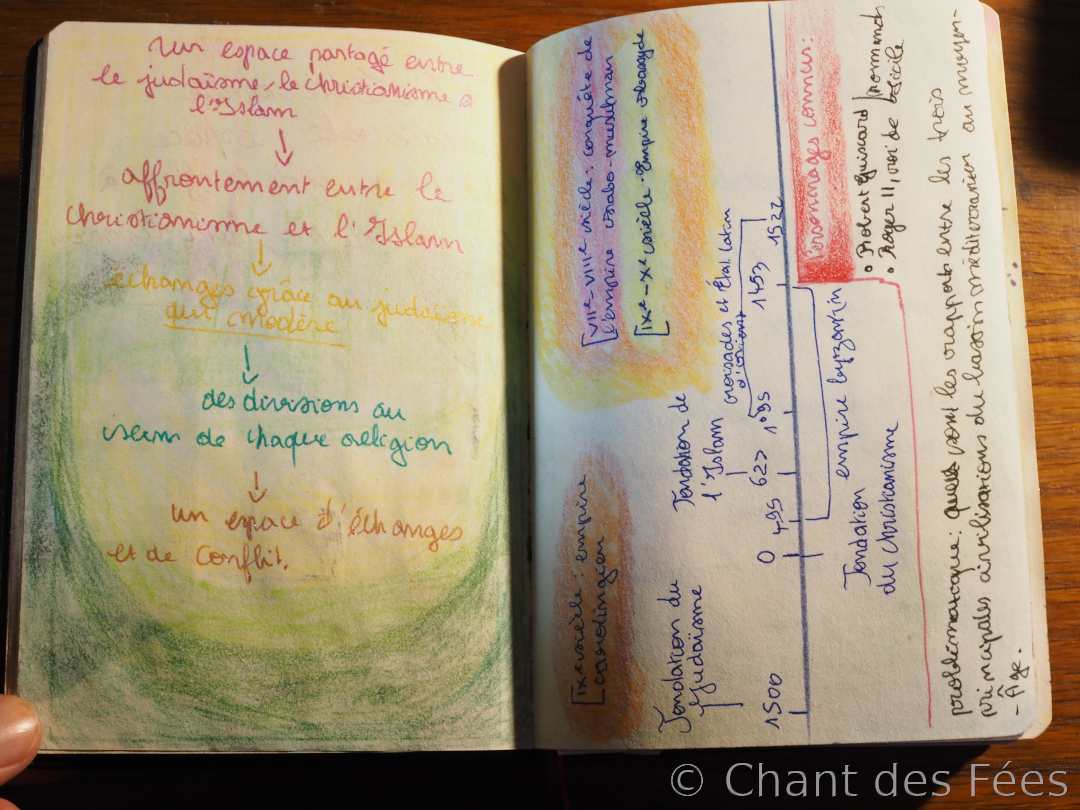 Un espace partagé entre
le judaïsme, le christianisme &
l'Islam
↓
affrontement entre le
christianisme et l'Islam
↓
échanges grâce au judaïsme
qui modère
↓
des divisions au
sein de chaque religion
↓
un espace d'échanges
et de conflit.
[IXe siècle : empire
carolingien
[VIIe-VIIIe siècle : conquête de
l'empire arabo-musulman
[IXe-Xe siècle : Empire Abasside
Fondation du
Judaïsme
Fondation de
l'Islam
croisades et État latin
d'orient
1500 0 495 622 1095 1453 1522
Fondation
du christianisme
empire byzantin
Personnages connus :
• Robert Guiscard
• Roger II, roi de Sicile
normands
problématique : quels sont les rapports entre les trois
principales civilisations du bassin méditerranéen au moyen-
-Âge.
© Chant des Fées